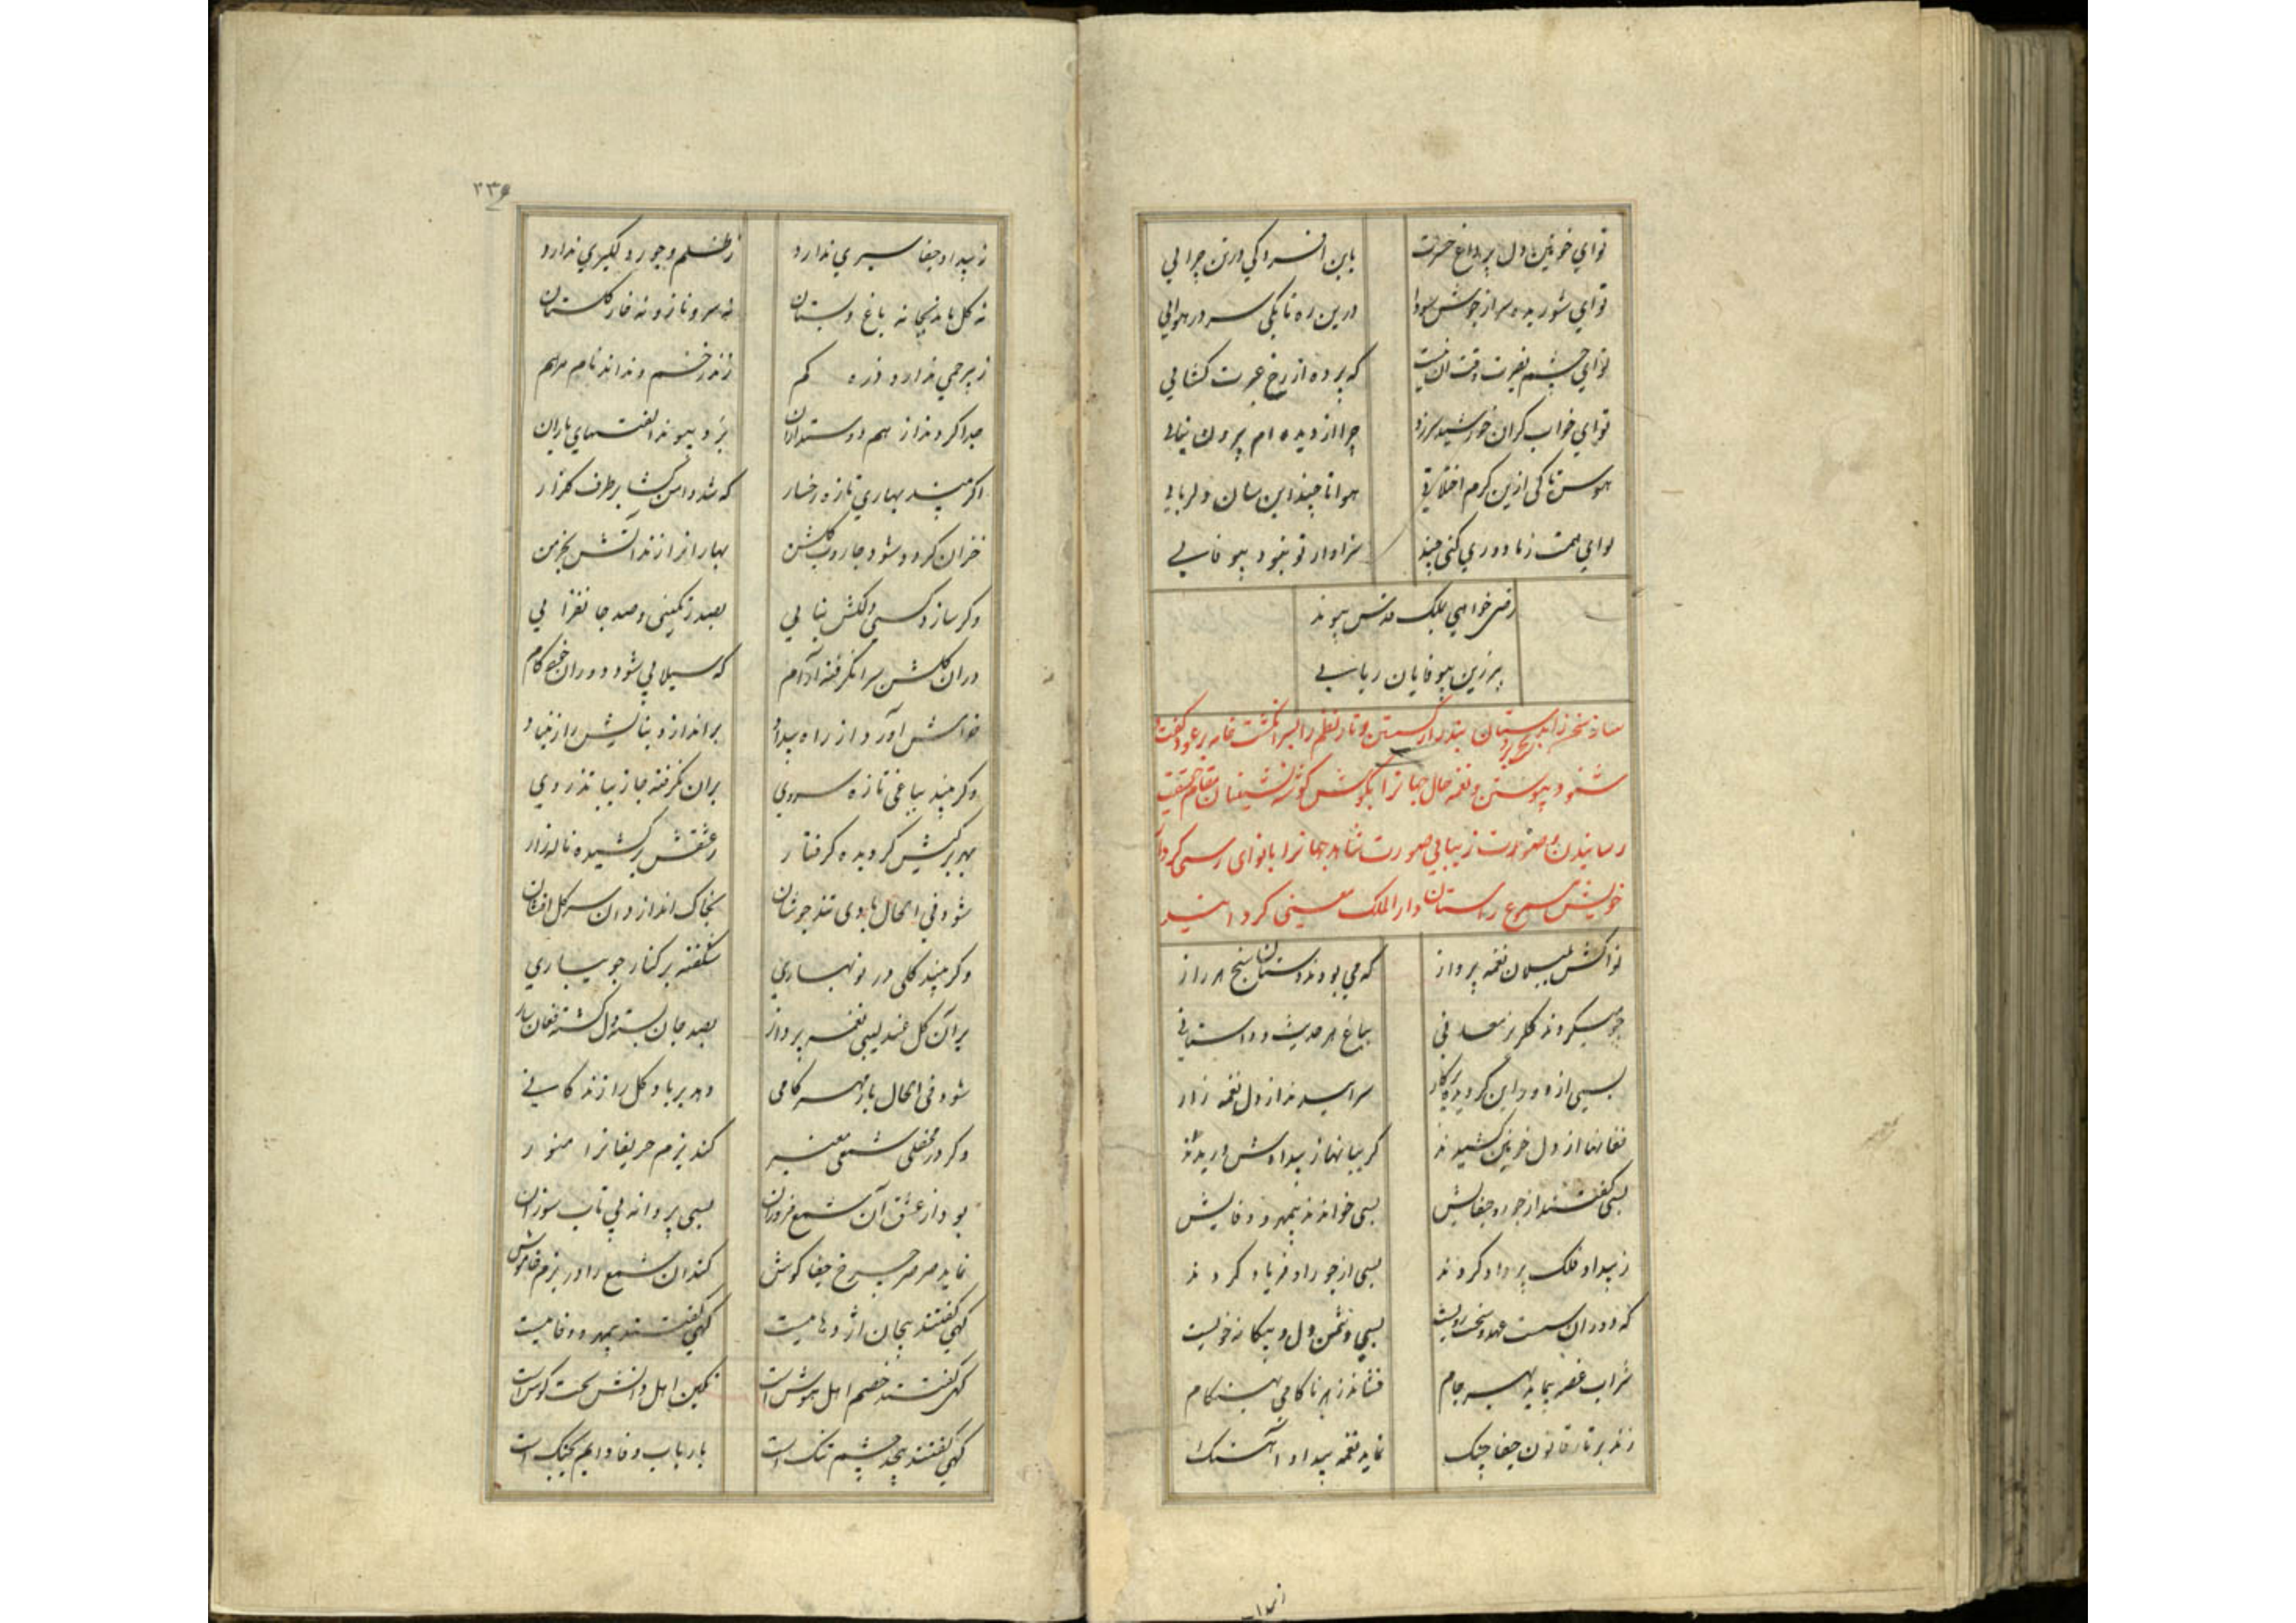 توای خونین دل پر داغ حسرت باین افسردکی درتن چرایی
توای شوریده سر از جوش سودا درین ره تا بکی سر در هوایی
توای چشم بصیرت وقت آن نیست که پرده از رخ عبرت کشایی
توای خواب کران خورشید سر زد چرا از دیده ام بیرون نیایی
هوس تا کی ازین کرم اختلاطی هوا تا چند این سان دلربایی
توای همت ز ما دوری کنی چند سزاوار تو نبود بیوفایی
رضی خواهی بملک قدس پیوند
ببر زین بیوفایان ریایی
ساز سخن ز
شنودپیوستن و نغمه حال جهانرا بکوش کوشه نشینان مقام حقیقت
رسانیدن و صورت زیبایی صورت شاهد جهانرا بانوای رسمی کردار
خویش مسموع راستان دارالملک معینی کردانید
نواکش بلبلان نغمه پرداز که می بودند دستان سنج هر راز
چو میکردند کلریز معانی بباغ هر حدیث و داستانی
بسی از دور این کردیده پرکار سراییدند از دل نغمه زار
فغانها از دل خونین کشیدند کریبانها ز بیدادش دریدند
بسی کفتند از جور و جفایش بسی خواندند بیمهر و وفایش
ز بیداد فلک پر داد کردند بسی از جور او فریاد کردند
که دوران سست عهد و سخت رویست بسی دشمن دل و بیکانه خویست
شراب غصه پیماید بهر جام فشاند زهر ناکامی بهر کام
زند بر تار قانون جفا چنک نماید نغمه بیداد آهنک
۲۳۶
ز بیداد و جفا سیری ندارد ز ظلم و جور دلکیری ندارد
نه کل ماند بجا نه باغ و بستان نه سرو ناز و نه خار کلستان
ز بیرحمی ندارد ذره کم زند زخم و نداند نام مرهم
جدا کردند از هم دوستداران برد پیوند الفتهای یاران
اکر بیند بهاری تازه رخسار که شد دامن کشا بر طرف کلزار
خزان کردد شود جاروب کلشن بهار انرا زند آتش بخرمن
وکر سازد کسی دلکش بنایی بصد رنکینی و صد جانفزایی
دران کلشن سرا نکرفته آرام که سیلابی شود دوران خودکام
خرامش آورد از راه بیداد براندازد بنایش را ز بنیاد
وکر بیند بباغی تازه سروی بران نکرفته جا زیبا تذروی
بهر برکیش کردیده کرفتار ز عشقش برکشیده ناله زار
شود فی الحال بادی تند جوشان بخاک اندازد ان سر کل افشان
وکر بیند کلی در نوبهاری شکفته بر کنار جویباری
بران کل عندلیبی نغمه پرداز بصد جان بسته دل کشته فغان ساز
شود فی الحال باد مهرکانی دهد بر باد کل را زندکانی
وکر در محفلی شمعی منیر کند بزم حریفانرا منور
بود از عشق آن شمع فروزان بسی پروانه بی تاب سوزان
نماید صرصر چرخ جفا کوش کند ان شمع را در بزم خاموش
کهی کفتند بیجان اژدهاییست کهی کفتند بیمهر و وفاییست
کهی کفتند خصم اهل هوش است بکین اهل دانش سخت کوش است
کهی کفتند بیحد چشم تنک است بارباب وفا دایم بجنک است